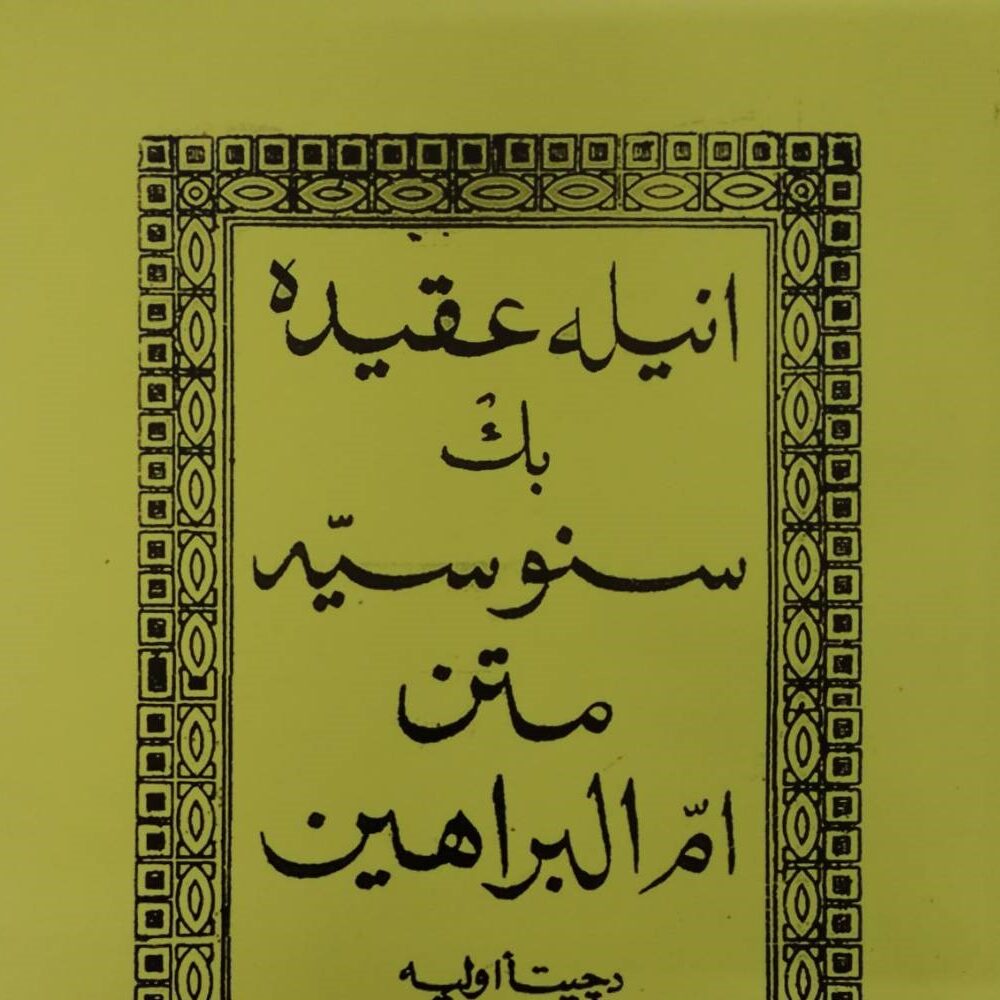 انيله عقيده
بݢ
سنوسيّه
متن
امّ البراهين
دچيتأ اوليه